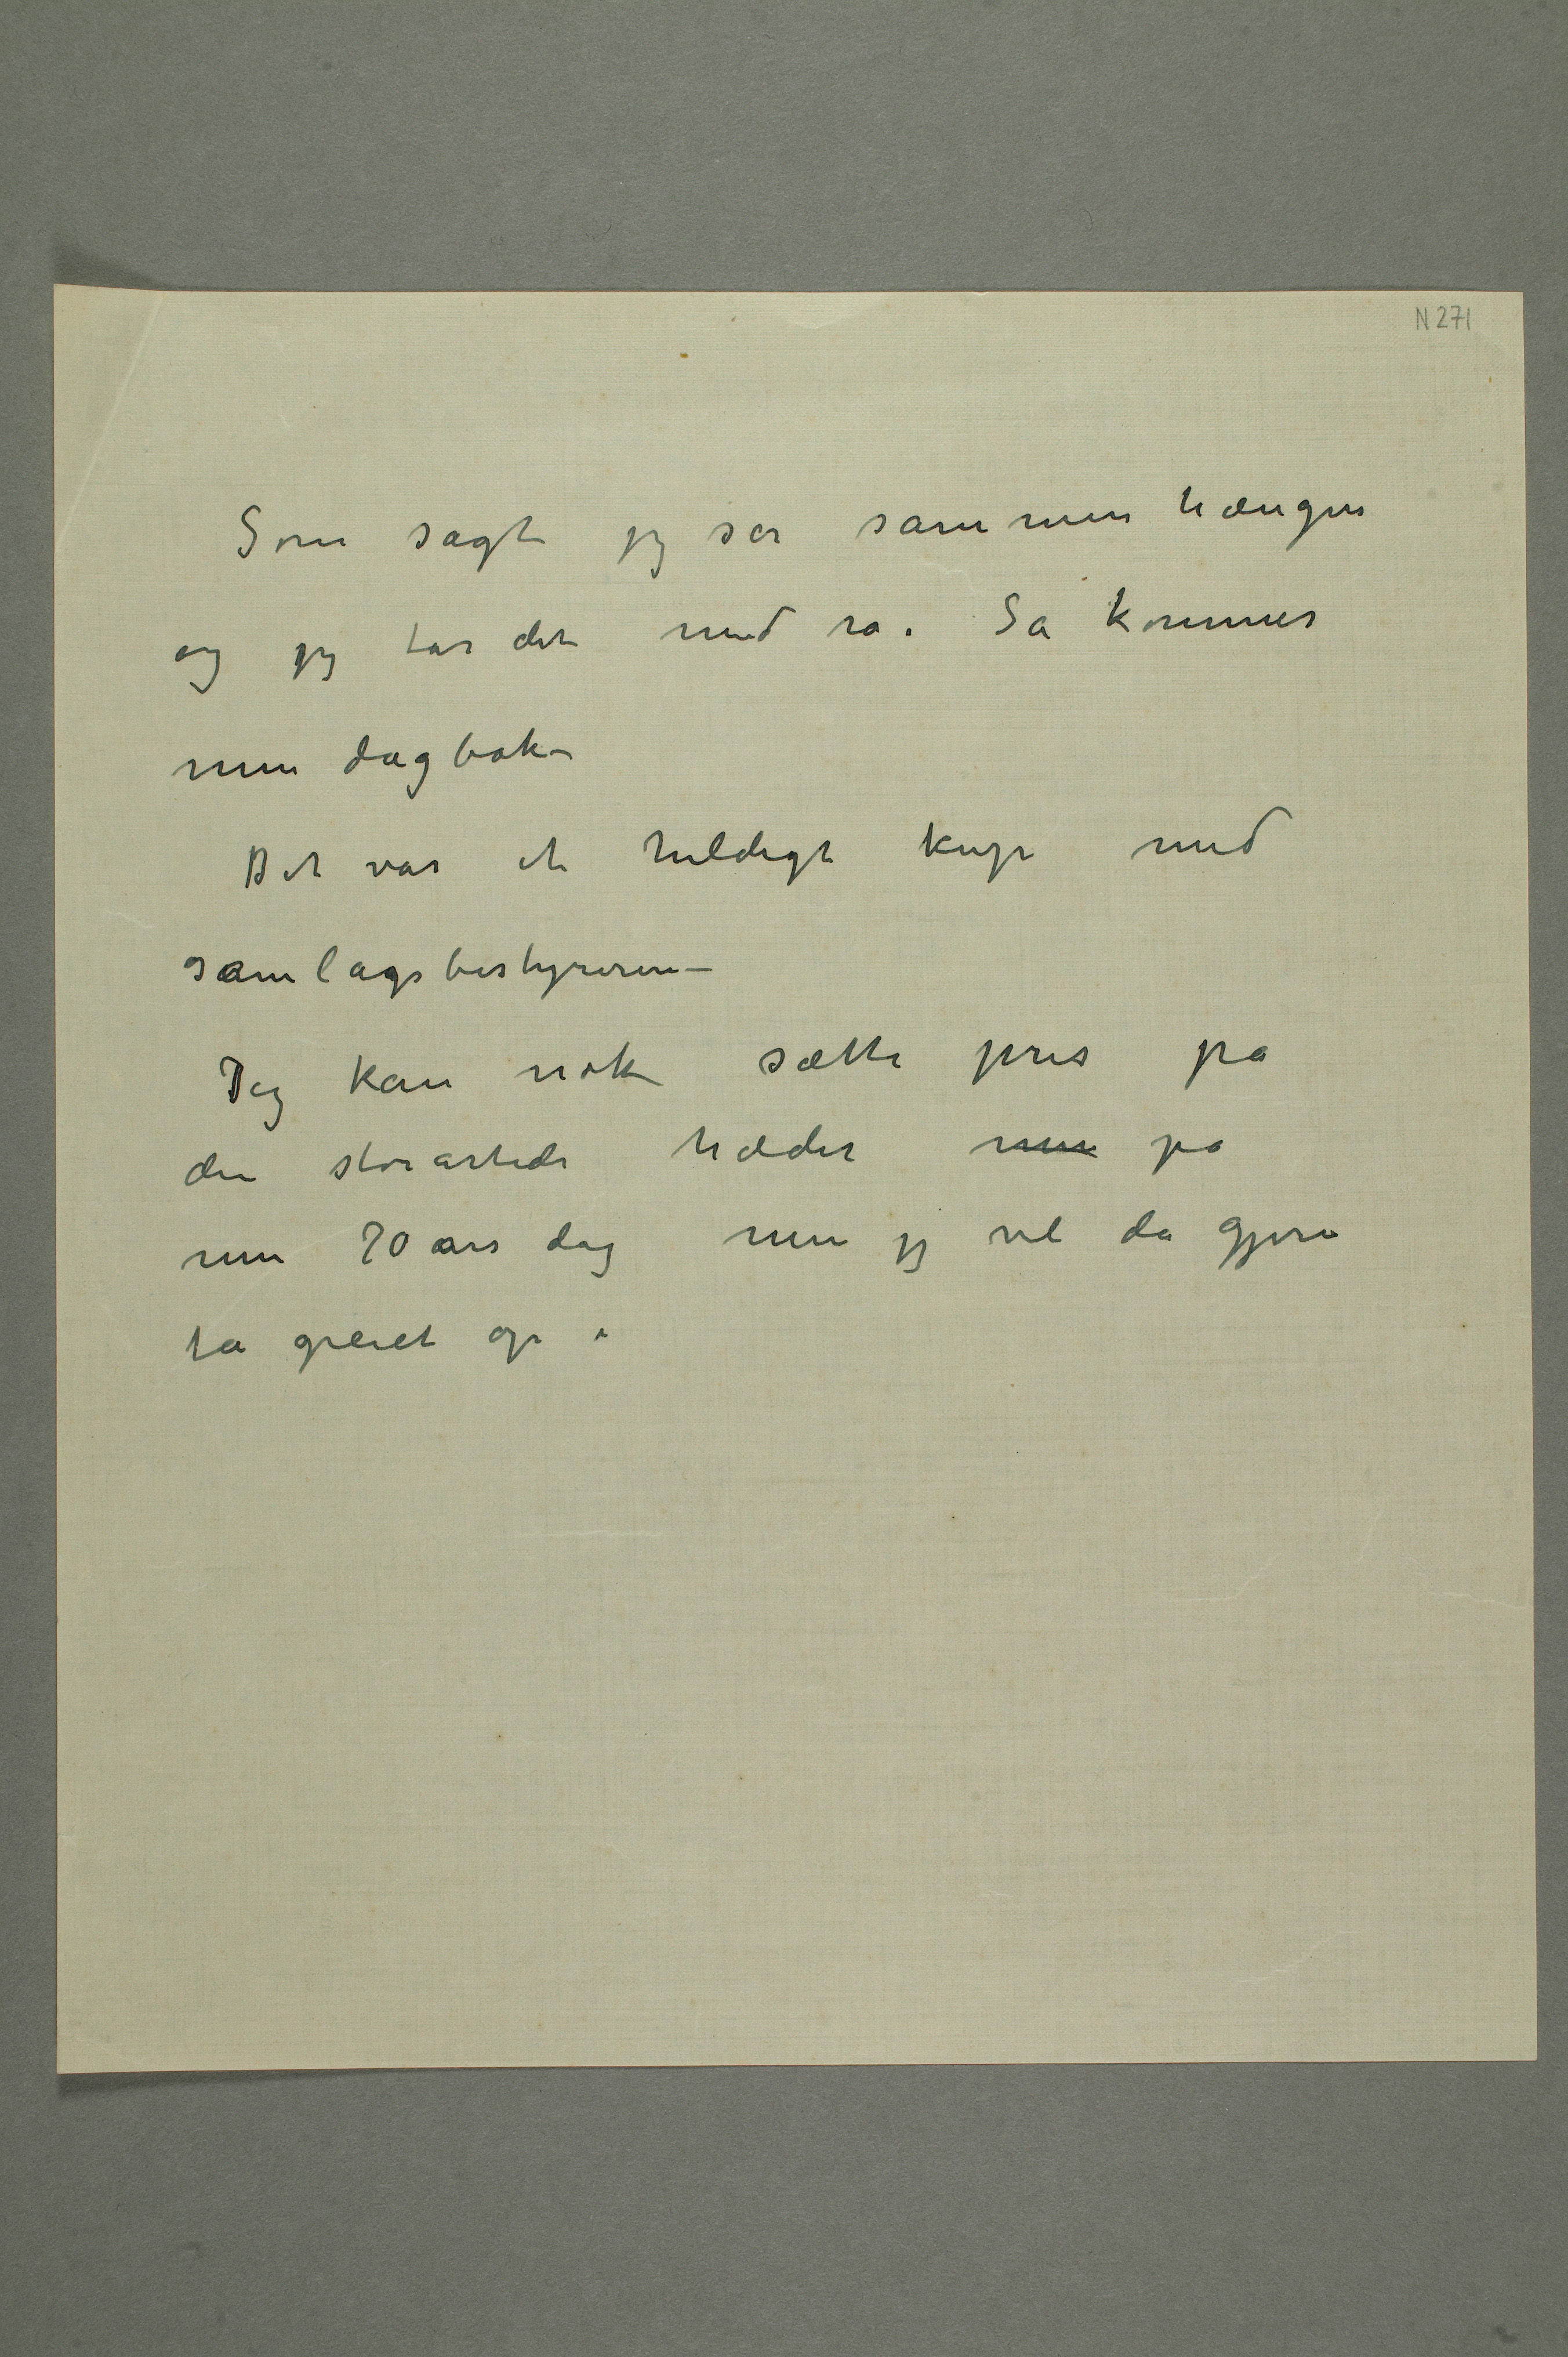 N 271
Som sagt jeg ser sammenhængen
og jeg tar det med ro. Så kommer
min dagbok –
Det var et heldigt kup med
samlagsbestyreren –
Jeg kan nok sætte pris på
den storartede hæder min på
min 70 års dag men jeg vil da gjerne
ta gleict op i